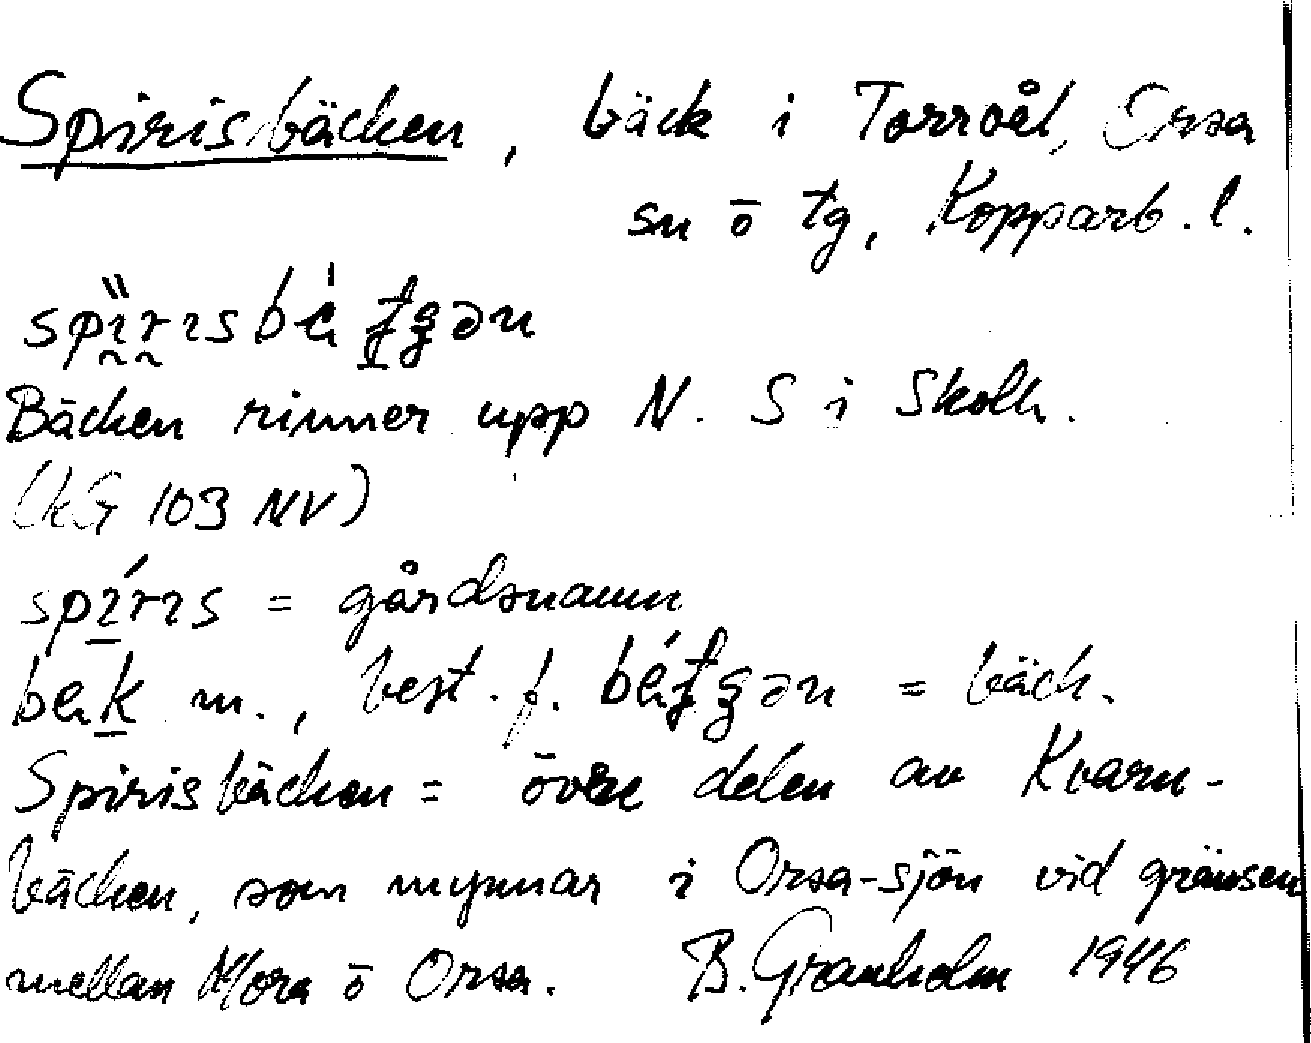 Spirisbäcken, bäck i Torrvål, Orsa
sn ō tg, Kopparb. l.
Bäcken rinner upp N. S i Skolh.
(kG 103 NV)
= gårdsnamn
m., best. f. = bäck.
Spirisbäcken = övre delen av Kvarn-
bäcken, som mynnar i Orsa-sjön vid gränsen
mellan Mora ō Orsa. B. Granholm 1946